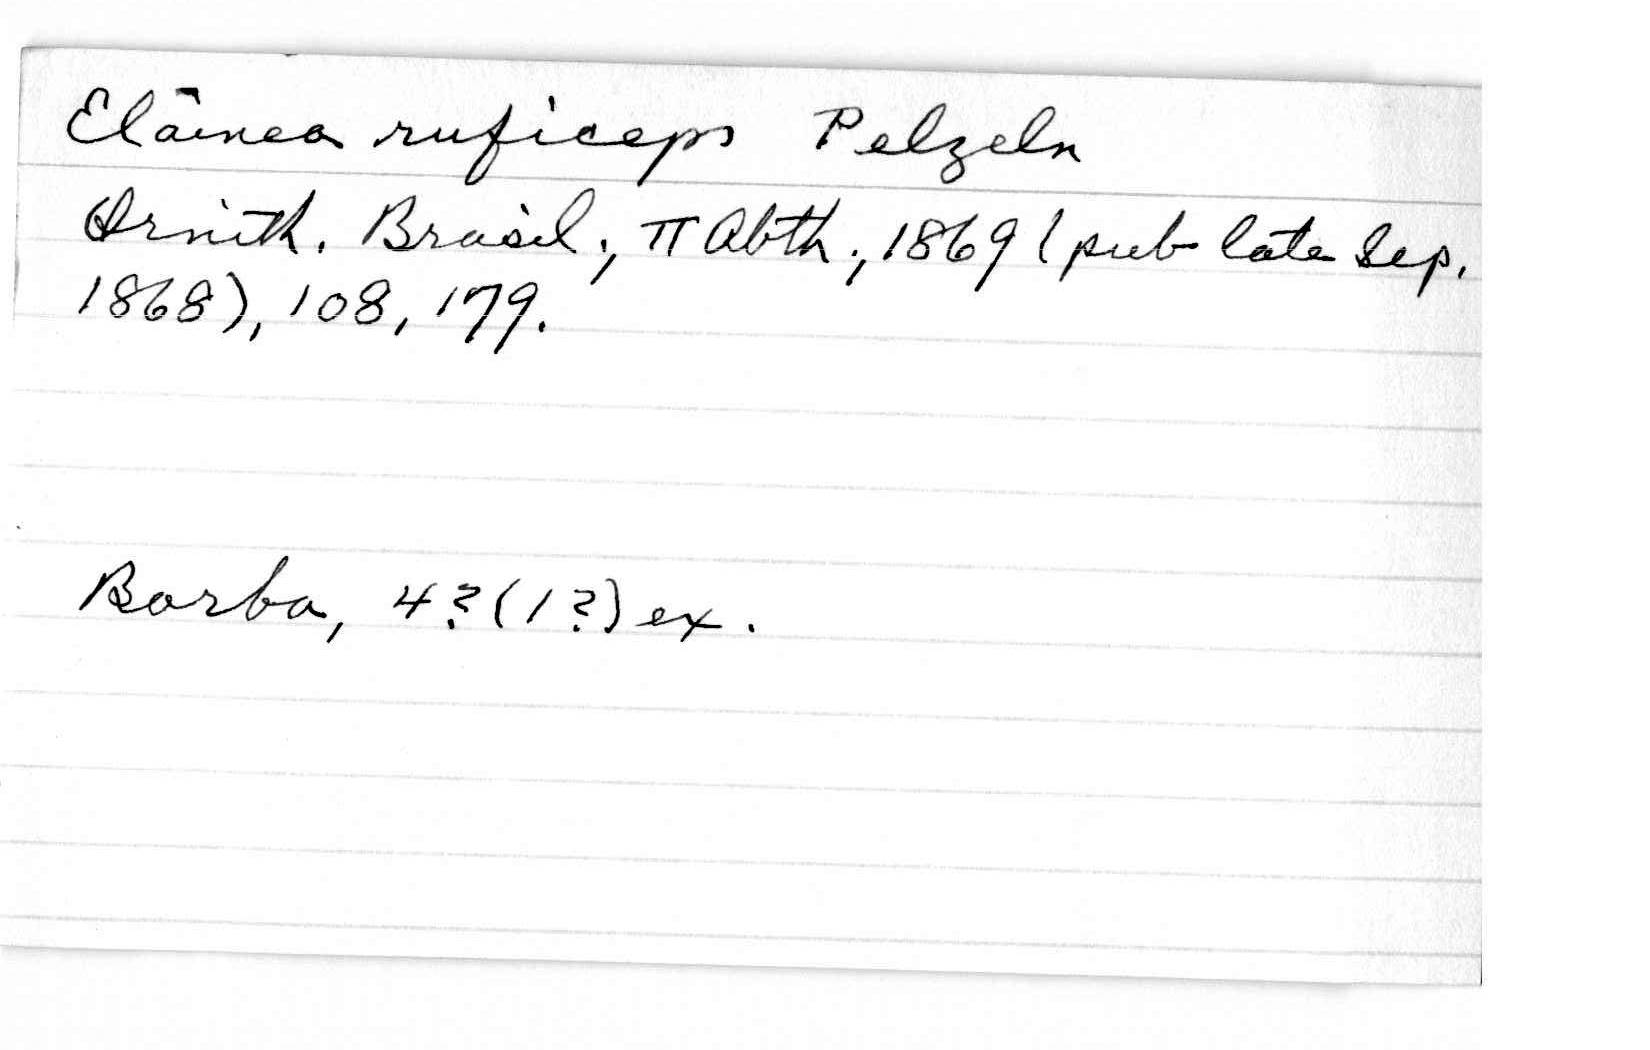 Elainea ruficeps Pelzeln
Ornith. Brasil, II Abth., 1869 (pub late Sep.
1868), 108, 179.
Borba, 4?(1?) ex.